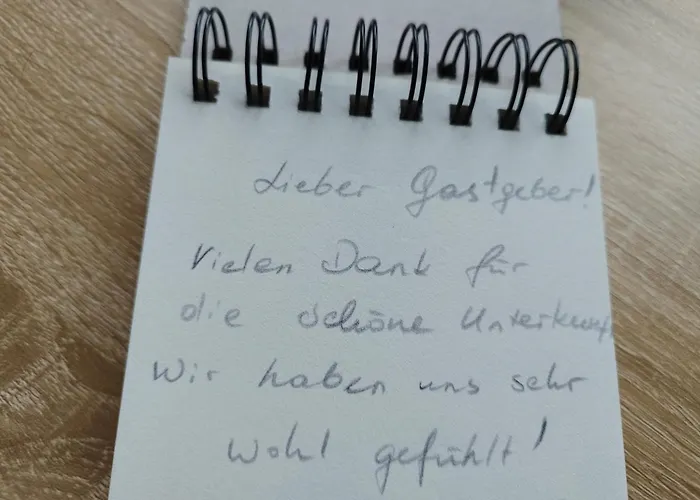 Lieber Gastgeber!
Vielen Dank für
die schöne Unterkunft
Wir haben uns sehr
wohl gefühlt!